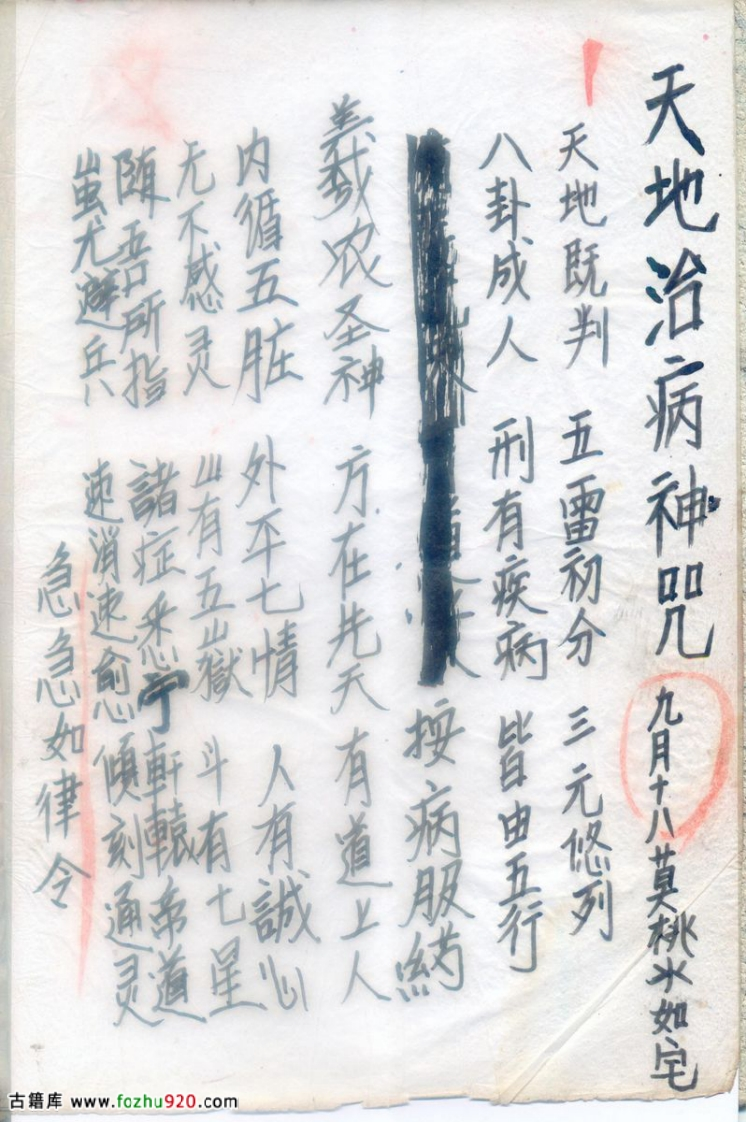 天地治病神咒 九月十八莫桃水如宅
天地既判 五雷初分 三元悠列
八卦成人 刑有疾病 皆由五行
按病服药
羲农圣神 方在先天 有道上人
内循五脏 外平七情 人有誠心
无不感灵 山有五嶽 斗有七星
随吾所指 諸症悉宁 軒轅帝道
蚩尤避兵 速消速愈 傾刻通灵
急急如律令
古籍库 www.fozhu920.com